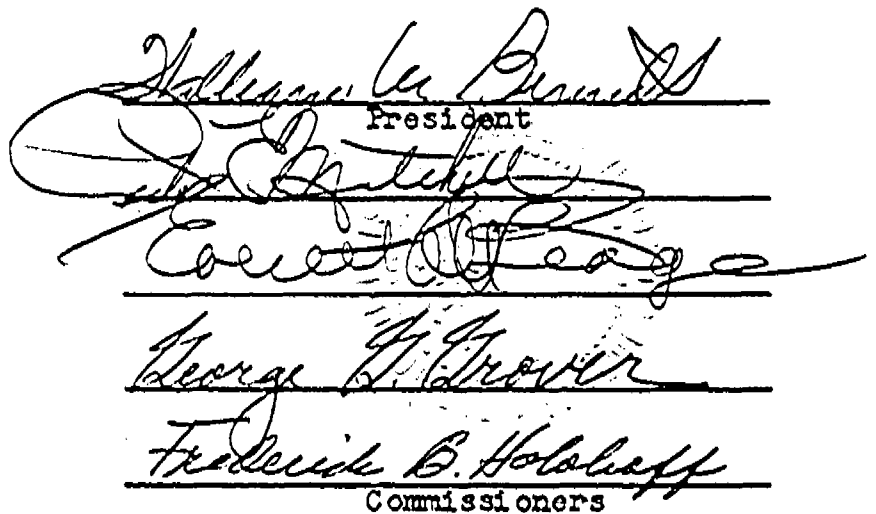 William M. Bennett
President
Mitchell
Everett C. McKeage
George G. Grover
Frederick B. Holoboff
Commissioners